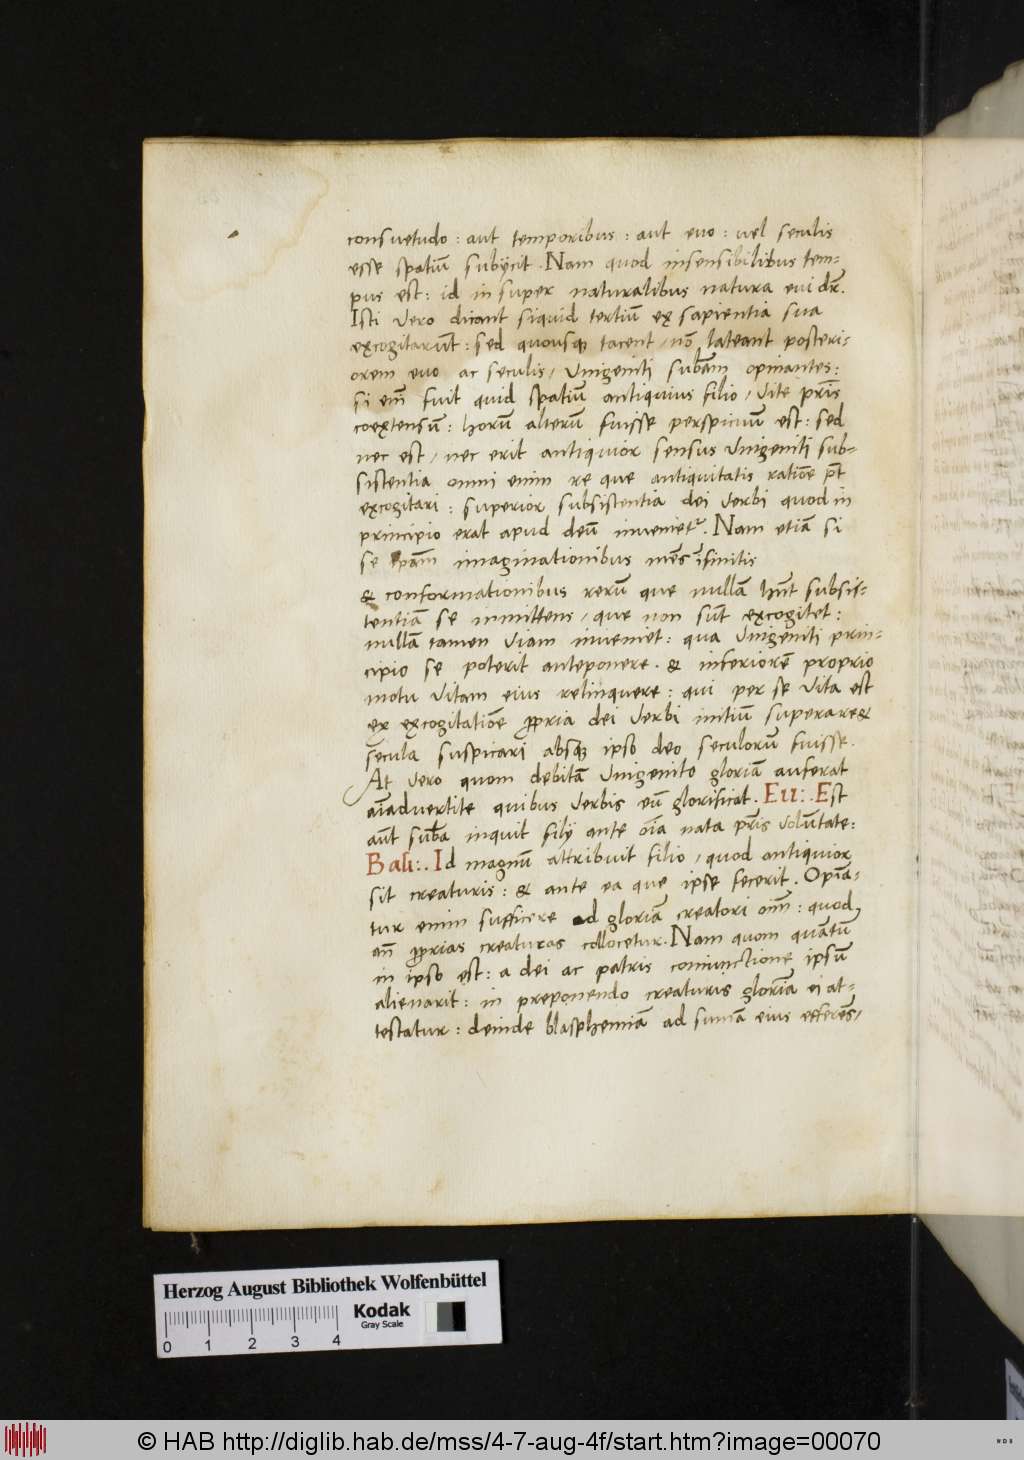 consuetudo : aut temporibus : aut euo : uel seculis
esse spatiū subijcit . Nam quod insensibilibus tem-
pus est : id in super naturalibus natura euidr̄.
Isti vero dicant siquid tertiū ex sapientia sua
excogitarūt : sed quousq; tacent / nō lateant posteri-
orem euo ac seculis / Vnigeniti subāam opinantes :
si em̄ fuit quid spatiū antiquius filio / vite pr̄is
coextensū : horū alterū fuisse perspicuū est : sed
nec est / nec erit antiquior sensus Vnigeniti sub-
sistentia omni enim re que antiquitatis ratiōe pn̄t
excogitari : superior subsistentia dei Verbi quod in
principio erat apud deū inuenietr. Nam etiā si
se ipām imaginationibus mēs īfinitis
& conformationibus rerū que nullā hn̄t subsis-
tentiā se inmittens / que non sūt excogitet :
nullā tamen viam inueniet : qua Vnigeniti prin-
cipio se poterit anteponere . & inferiorē proprio
motu vitam eius relinquere : qui per se vita est
ex excogitatiōe ꝓpria dei Verbi initiū superare &
secula suspicari absq; ipso deo seculorū fuisse .
At vero quom debitā Vnigenito gloriā auferat
aīaduertite quibus verbis eū glorificat . Eu : . Est
aūt subāa inquit filij ante oīa nata pr̄is volūtate :
Basi : . Id magnū attribuit filio / quod antiquior
sit creaturis : & ante ea que ipse fecerit . Opinā-
tur enim sufficere ad gloriā creatori oīm̄ : quod
an̄ ꝓprias creaturas collocetur . Nam quom quātū
in ipso est : a dei ac patris coniunctione ipsū
alienarit : in preponendo creaturis gloriā ei at-
testatur : deinde blasphemiā ad sumā eius efferēs /
Herzog August Bibliothek Wolfenbüttel
Kodak
Gray Scale
0 1 2 3 4
© HAB http://diglib.hab.de/mss/4-7-aug-4f/start.htm?image=00070